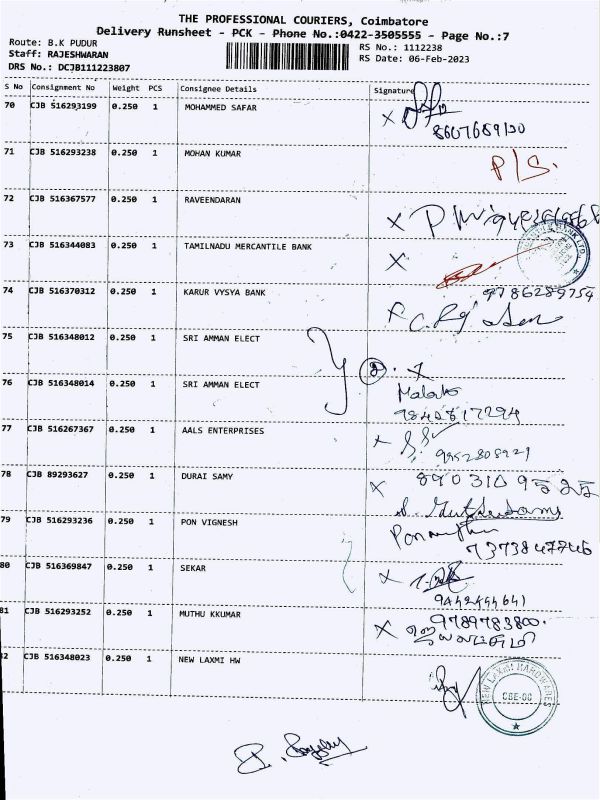 THE PROFESSIONAL COURIERS, Coimbatore
Delivery Runsheet - PCK - Phone No.:0422-3505555 - Page No.:7
Route: B.K PUDUR
RS No.: 1112238
Staff: RAJESHWARAN
RS Date: 06-Feb-2023
DRS No.: DCJB111223807
S No Consignment No Weight PCS Consignee Details Signature
70 CJB 516293199 0.250 1 MOHAMMED SAFAR X
8607689130
71 CJB 516293238 0.250 1 MOHAN KUMAR P/S.
72 CJB 516367577 0.250 1 RAVEENDARAN X
73 CJB 516344083 0.250 1 TAMILNADU MERCANTILE BANK X
74 CJB 516370312 0.250 1 KARUR VYSYA BANK 9786289754
75 CJB 516348012 0.250 1 SRI AMMAN ELECT
76 CJB 516348014 0.250 1 SRI AMMAN ELECT
9840817294
77 CJB 516267367 0.250 1 AALS ENTERPRISES X
9952808921
78 CJB 89293627 0.250 1 DURAI SAMY X
79 CJB 516293236 0.250 1 PON VIGNESH
7373847746
80 CJB 516369847 0.250 1 SEKAR X
9442444641
81 CJB 516293252 0.250 1 MUTHU KKUMAR X 9789783800.
82 CJB 516348023 0.250 1 NEW LAXMI HW
NEW LAXMI HARDWARES